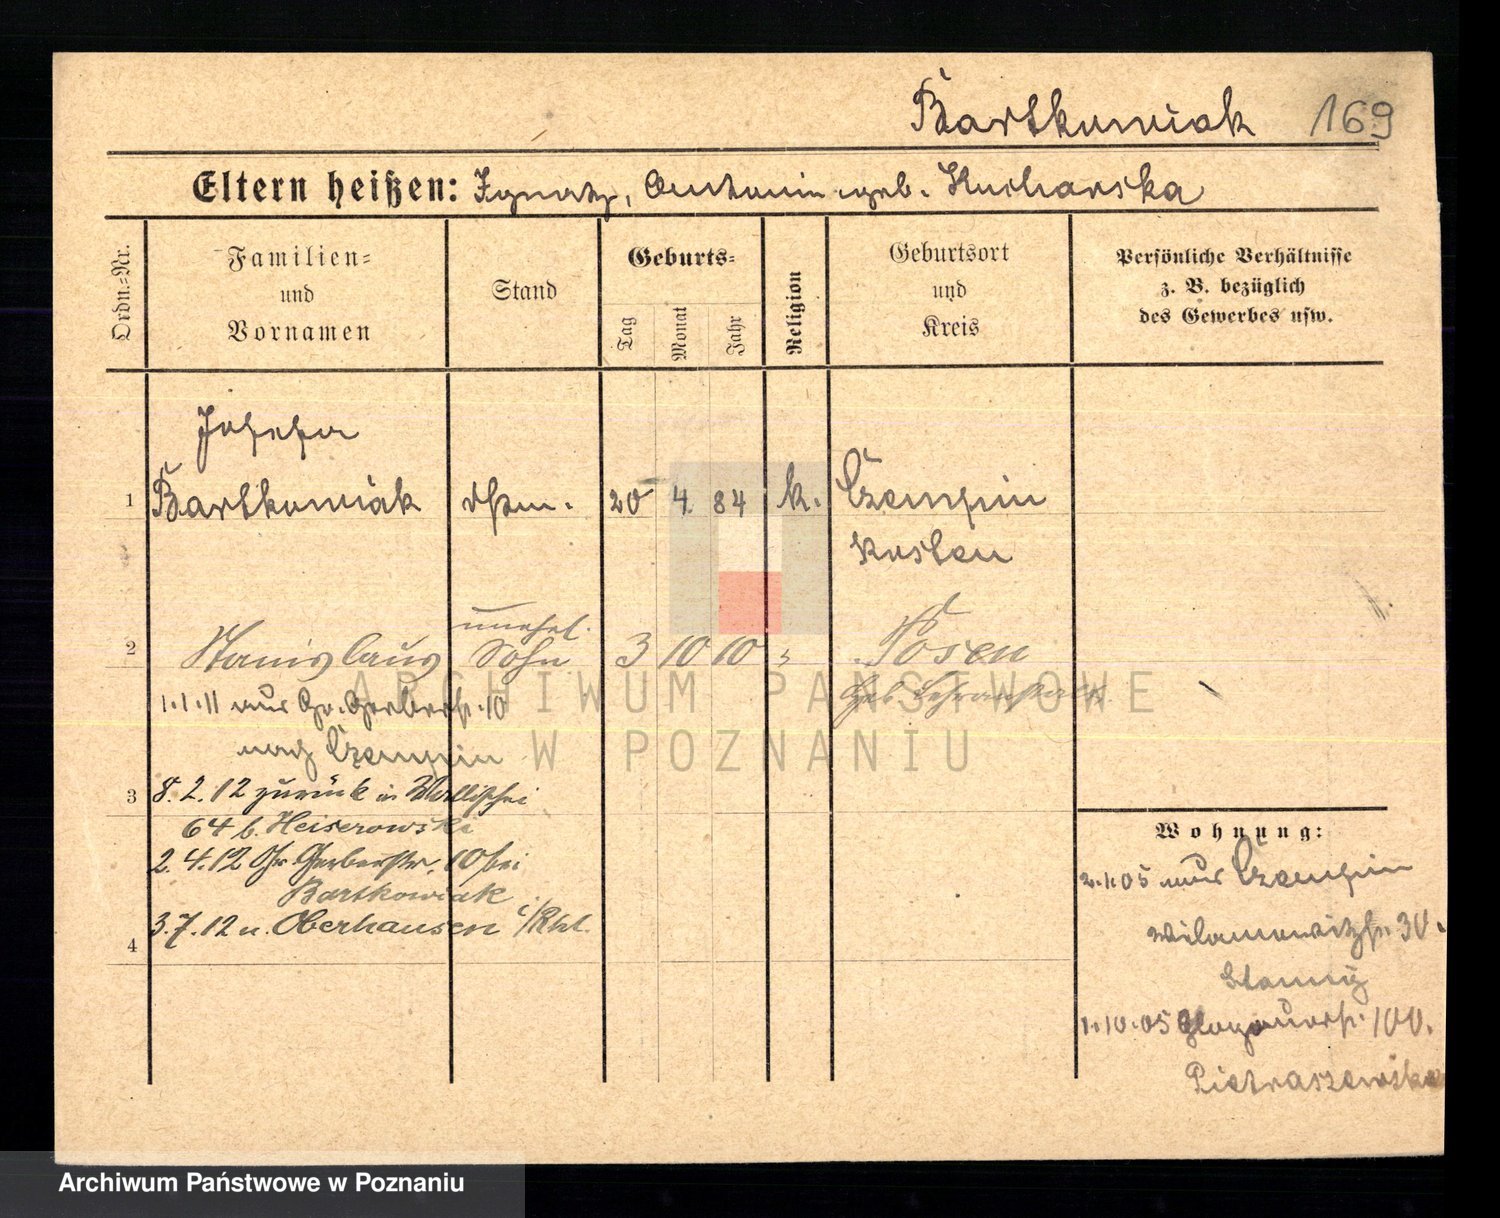 Bartkowiak 169
Eltern heißen: Ignatz, Antonie geb. Kucharska
Ordn.-Nr.
Familien-
und
Vornamen
Stand
Geburts-
Tag
Monat
Jahr
Religion
Geburtsort
und
Kreis
Persönliche Verhältnisse
z. B. bezüglich
des Gewerbes usw.
Josefa
1 Bartkowiak 20 4. 84 k. Czempin
Kosten
unehel.
2 Stanislaus Sohn 3 10 10 Posen
1.1.11 aus Gr. Gerberstr. 10
nach Czempin
3 8.2.12 zurück in Wallischei
64 b. Heiserowski
2.4.12 Gr. Gerberstr. 10 bei
Bartkowiak
3.7.12 n. Oberhausen i/Rhl.
4
Wohnung:
2.1.05 aus Czempin
Wilamowitzstr. 30.
1.10.05 Glogauerstr. 100.
Pietraszewska
ARCHIWUM PAŃSTWOWE
W POZNANIU
Archiwum Państwowe w Poznaniu